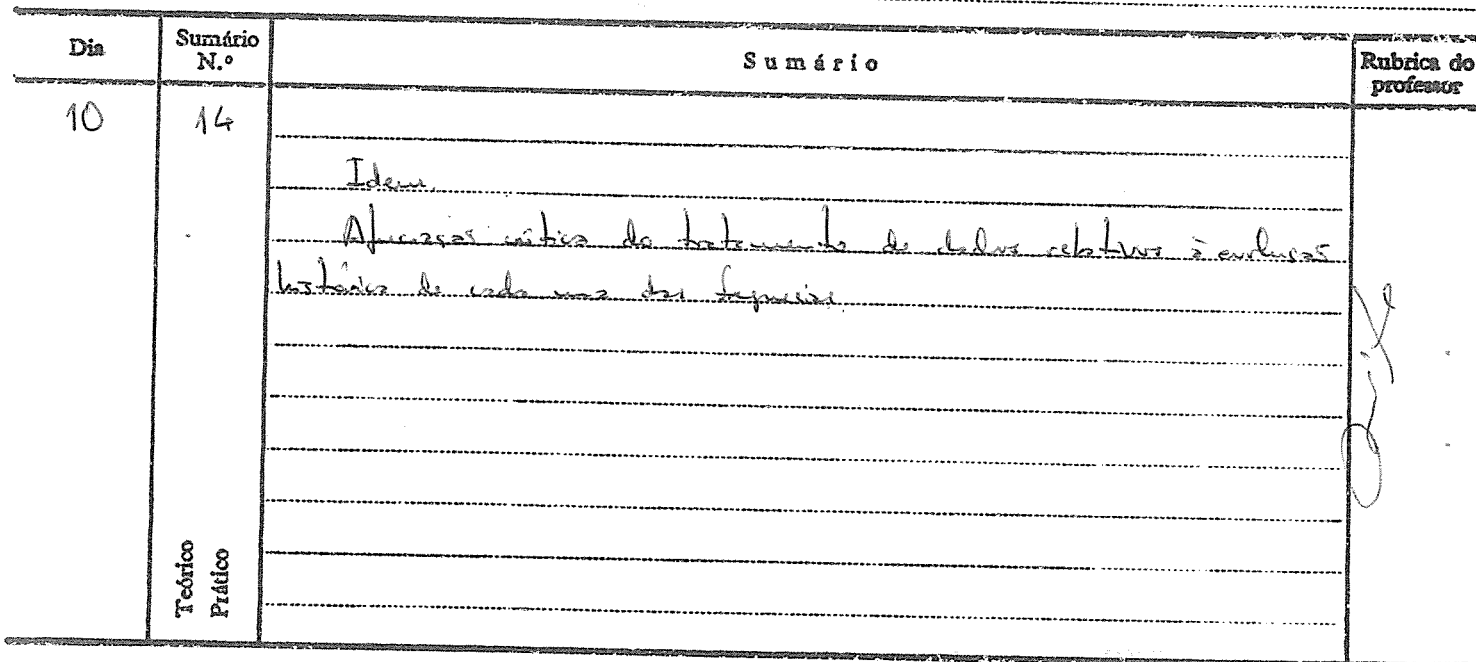 Dia
Sumário N.º
Sumário
Rubrica do professor
10
14
Idem.
Apreciação crítica do tratamento de dados relativos à evolução
histórica de cada uma das freguesias.
Teórico
Prático